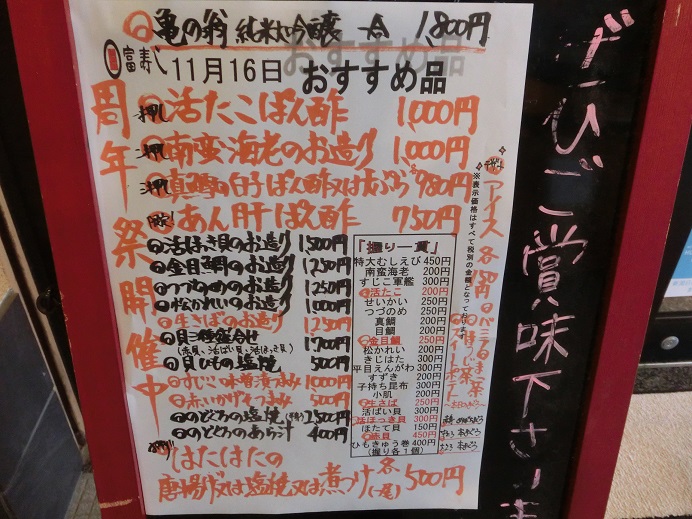 亀の翁 純米大吟醸 一合 1,800円
富寿し 11月16日 おすすめ品
周年祭開催中
押し 活たこぽん酢 1,000円
押し 南蛮海老のお造り 1,000円
押し 真鱈の白子ぽん酢又は天ぷら 980円
あん肝ぽん酢 750円
活ほっき貝のお造り 1,500円
金目鯛のお造り 1,250円
つづのめのお造り 1,250円
松かれいのお造り 1,000円
生さばのお造り 1,250円
貝三種盛合せ 1,700円
(赤貝、活ばい貝、活ほっき貝)
貝ひもの塩焼 500円
すじこ味噌漬つまみ 1,000円
赤いかげそつまみ 500円
のどぐろの塩焼 1,500円
のどぐろのあら汁 400円
はたはたの
唐揚げ又は塩焼又は煮つけ 各(一尾) 500円
『握り一貫』
特大むしえび 450円
南蛮海老 200円
すじこ軍艦 300円
活たこ 200円
せいかい 250円
つづのめ 250円
真鯛 200円
目鯛 200円
金目鯛 250円
松かれい 200円
きじはた 300円
平目えんがわ 300円
すずき 200円
子持ち昆布 300円
小肌 200円
生さば 250円
活ばい貝 300円
活ほっき貝 300円
ほたて貝 150円
赤貝 450円
ひもきゅう巻 400円
(握り各1個)
※表示価格はすべて税別の金額となっております
デザート アイス 各150円
バニラ
ぜひご賞味下さいませ